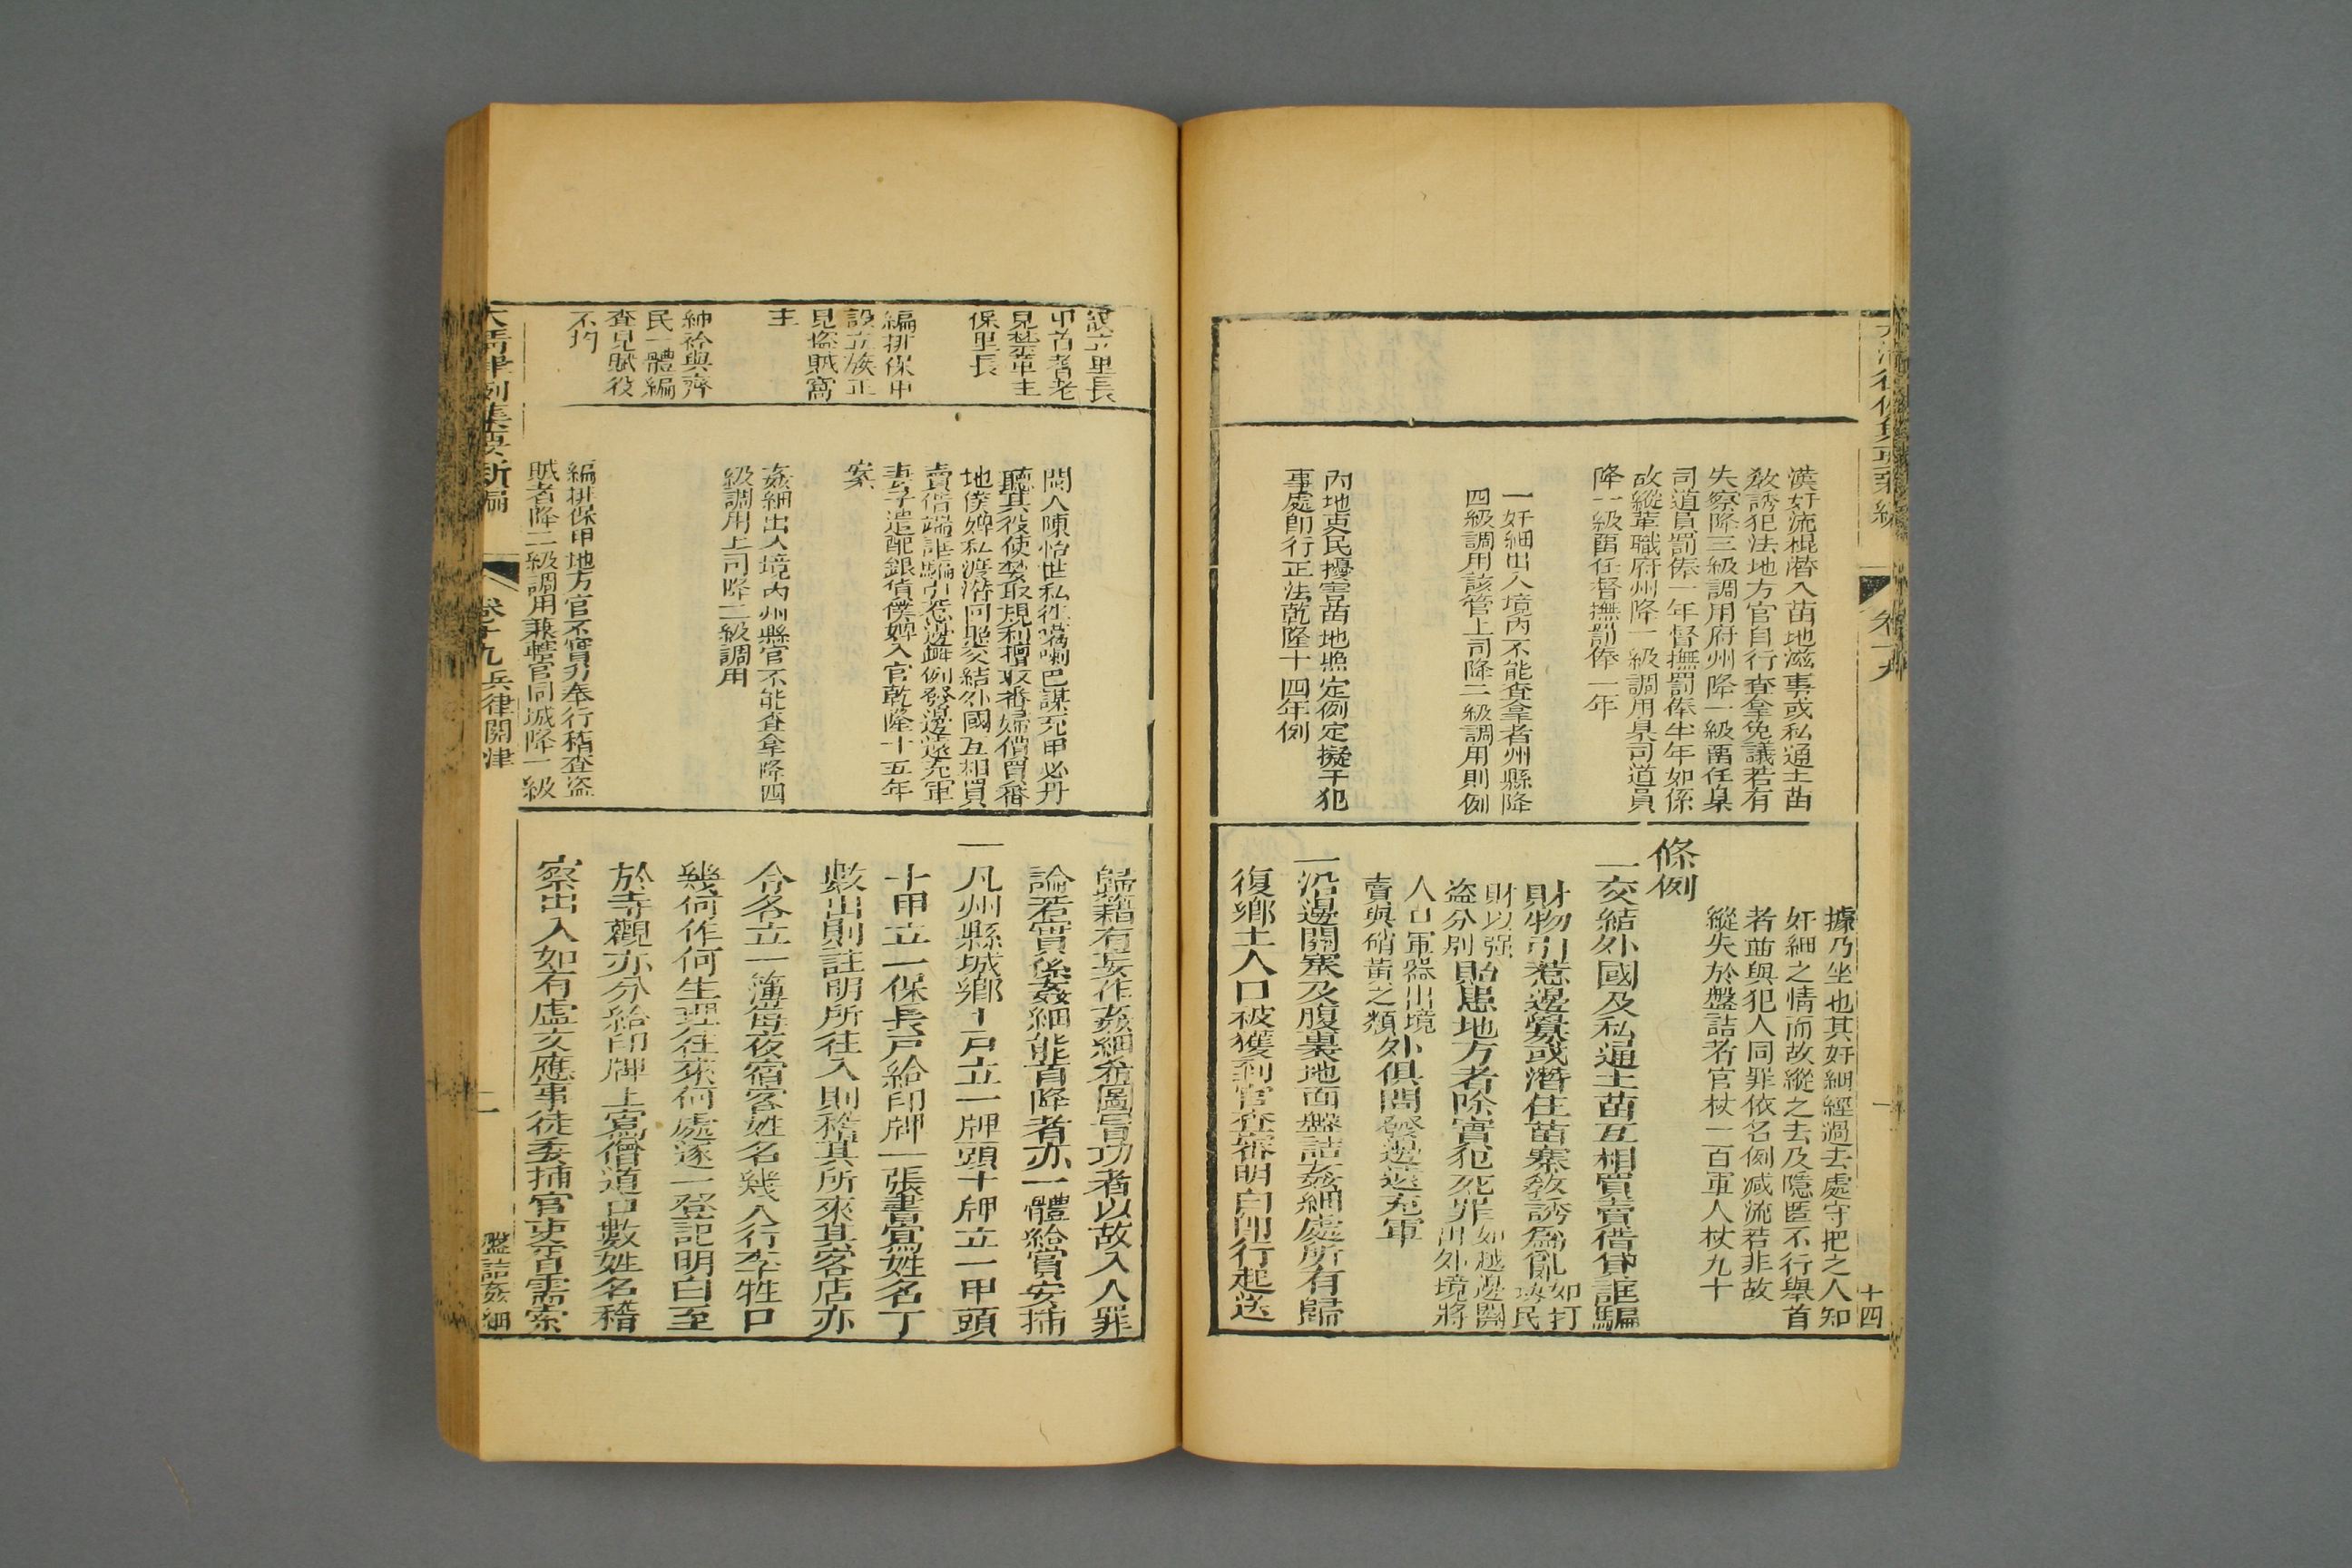 漢奸流棍潛入苗地滋事或私通土苗
教誘犯法地方官自行查拿免議若有
失察降三級調用府州降一級留任臬
司道員罰俸一年督撫罰俸半年如係
故縱革職府州降一級調用臬司道員
降一級留任督撫罰俸一年
一奸細出入境內不能查拿者州縣降
四級調用該管上司降二級調用則例
內地吏民擾害苗地照定例定擬干犯
事處即行正法乾隆十四年例
據乃坐也其奸細經過去處守把之人知
奸細之情而故縱之去及隱匿不行舉首
者並與犯人同罪依名例減流若非故
縱失於盤詰者官杖一百軍人杖九十
條例
一交結外國及私通土苗互相買賣借貸誆騙
財物引惹邊釁或潛住苗寨教誘為亂如打
劫民
財以强
盜分別貽患地方者除實犯死罪如越邊關
出外境將
人口軍器出境
賣與硝黃之類外俱問發邊遠充軍
一沿邊關寨及腹裏地面盤詰姦細處所有歸
復鄉土人口被獲到官查審明白即行起送
十四
設立里長
甲首耆老
見禁革主
保里長
編排保甲
設立族正
見盜賊窩
主
紳衿與齊
民一體編
查見賦役
不均
閩人陳怡世私往噶喇巴謀充甲必丹
聽其役使婪取規利擅取番婦僭買番
地僕婢私渡潛回照交結外國互相買
賣借端誆騙引惹邊釁例發邊遠充軍
妻子遣配銀偩僕婢入官乾隆十五年
案
姦細出入境內州縣官不能查拿降四
級調用上司降二級調用
編排保甲地方官不實力奉行稽查盜
賊者降二級調用兼轄官同城降一級
歸籍有妄作姦細希圖冒功者以故入人罪
論若實係姦細能首降者亦一體給賞安插
一凡州縣城鄉十戶立一牌頭十牌立一甲頭
十甲立一保長戶給印牌一張書寫姓名丁
數出則註明所往入則稽其所來其客店亦
令各立一簿每夜宿客姓名幾人行李牲口
幾何作何生理往來何處逐一登記明白至
於寺觀亦分給印牌上寫僧道口數姓名稽
察出入如有虛文應事徒委捕官吏胥需索
大清律例集要新編
卷十九兵律關津
二
盤詰姦細